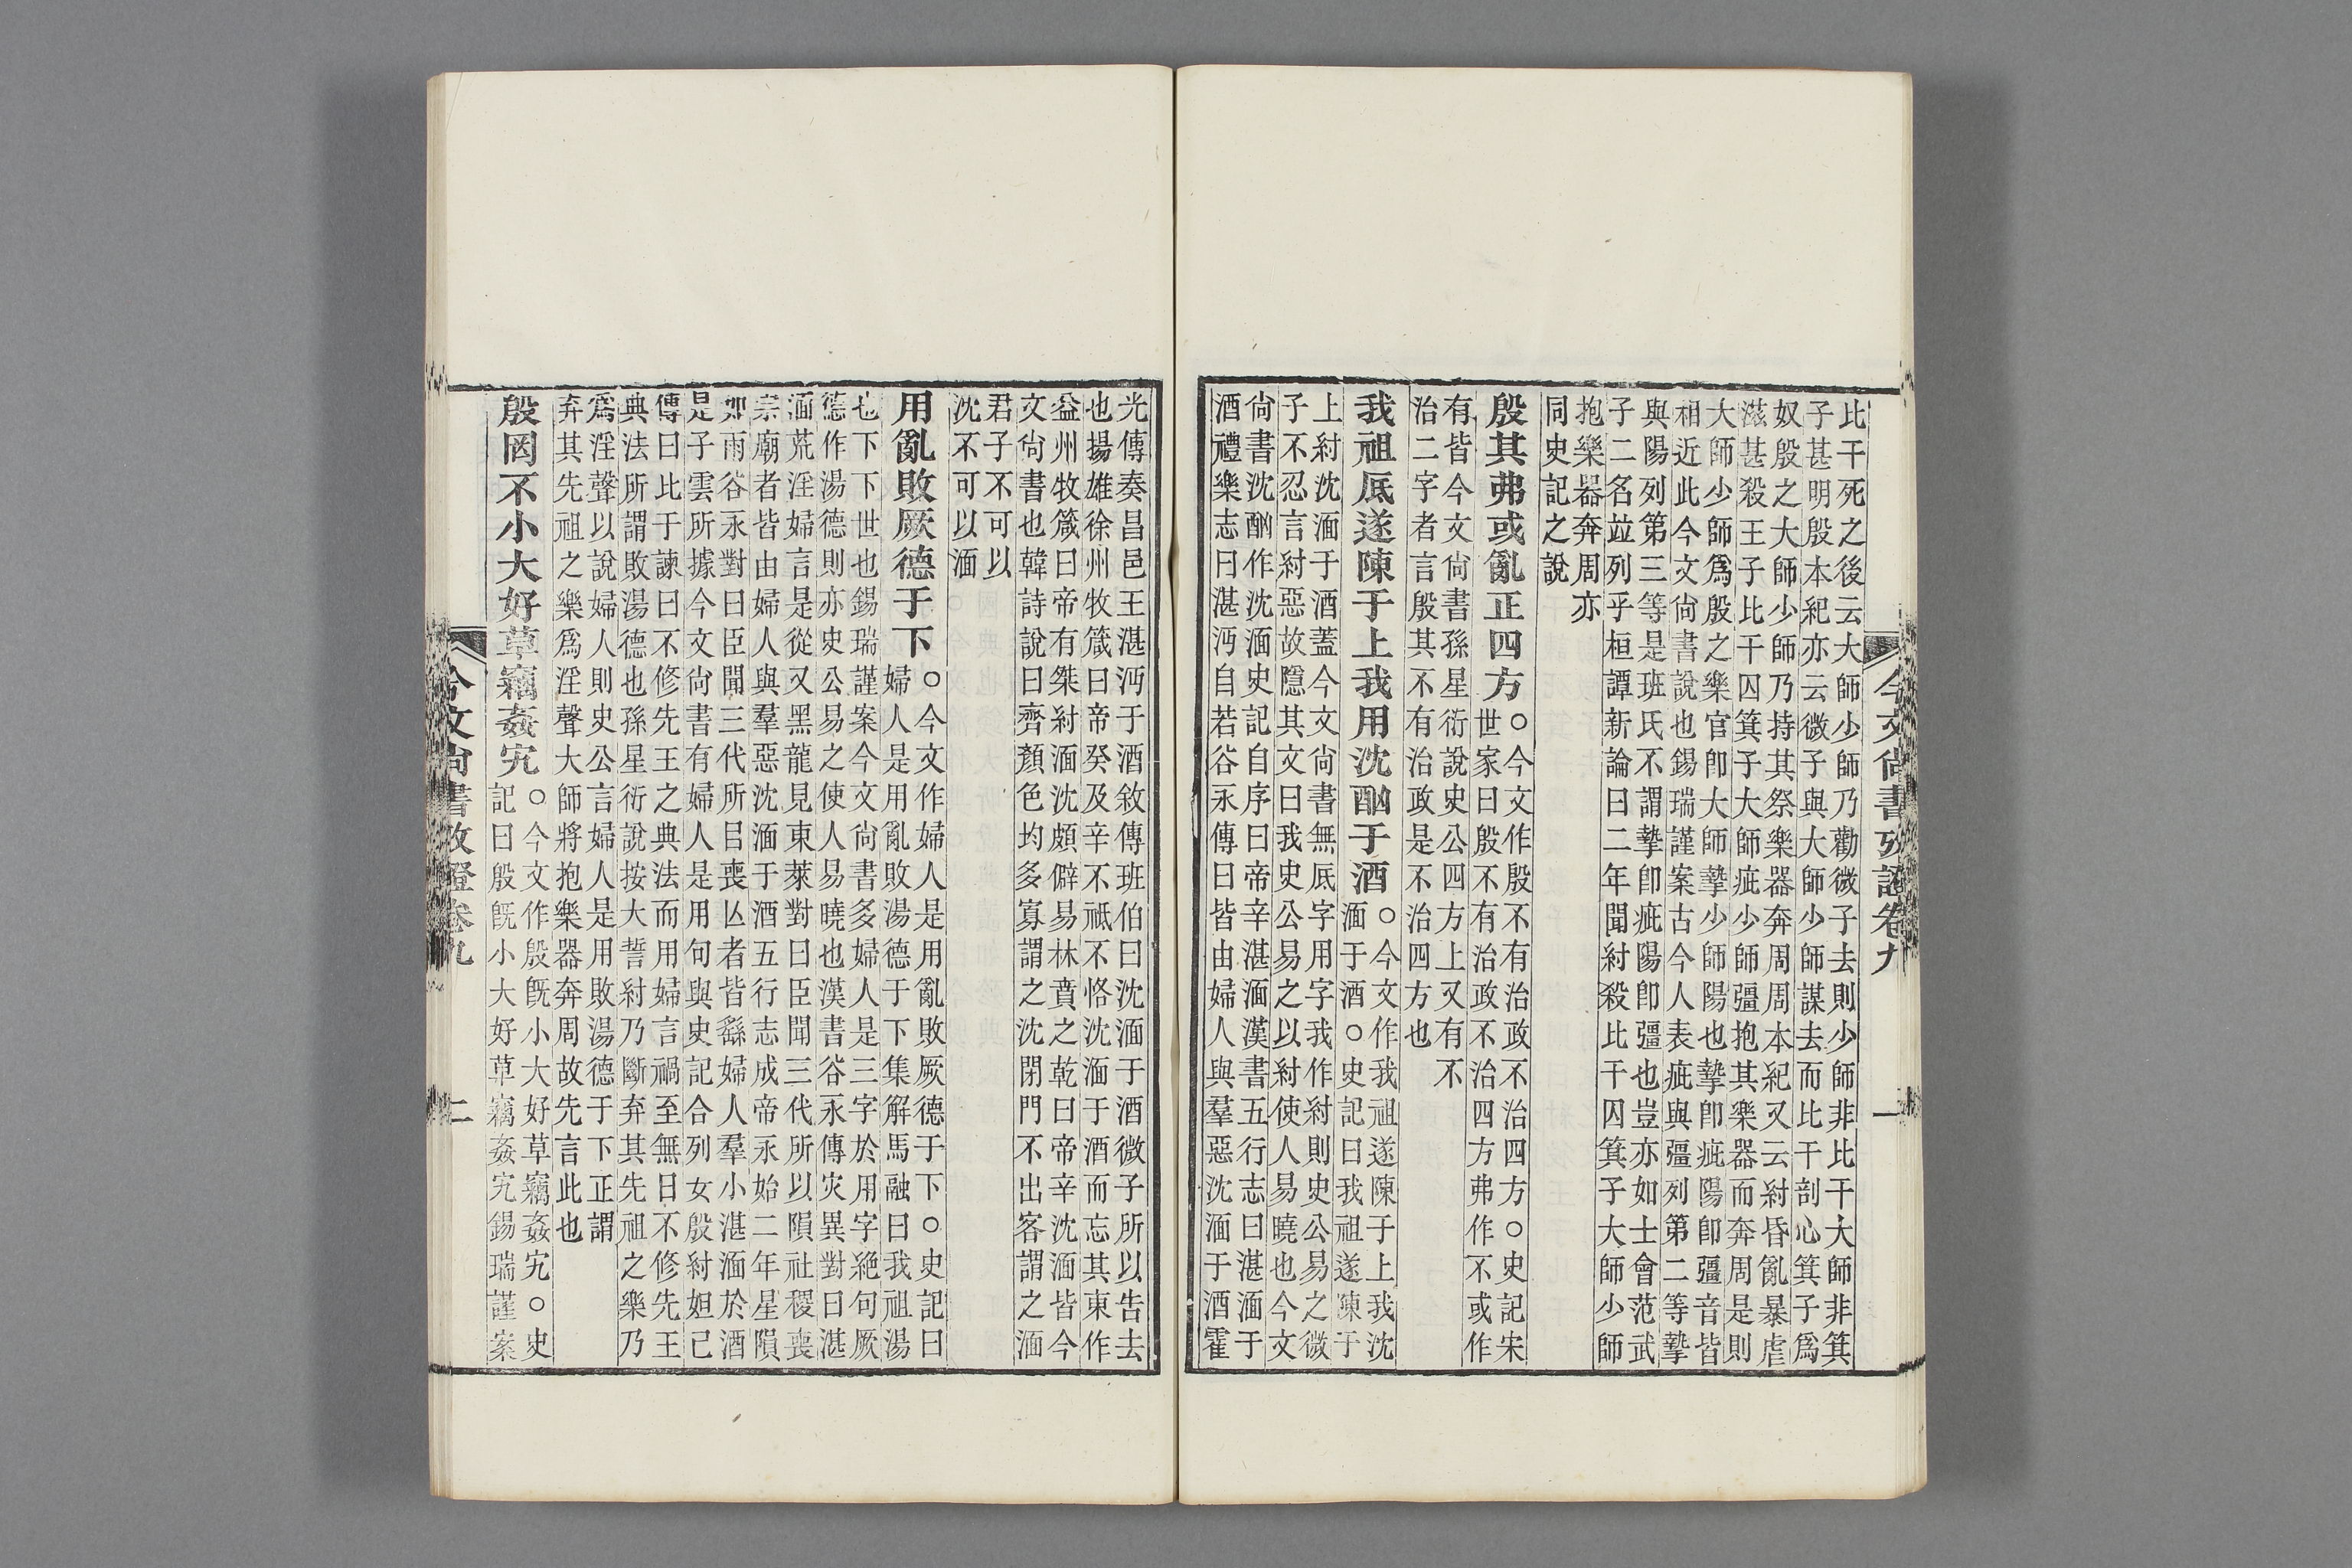 今文尚書攷證卷九 一
比干死之後云大師少師乃勸微子去則少師非比干大師非箕
子甚明殷本紀亦云微子與大師少師謀去而比干剖心箕子爲
奴殷之大師少師乃持其祭樂器奔周周本紀又云紂昏亂暴虐
滋甚殺王子比干囚箕子大師疵少師彊抱其樂器而奔周是則
大師少師爲殷之樂官卽大師摯少師陽也摯卽疵陽卽彊音皆
相近此今文尚書說也錫瑞謹案古今人表疵與彊列第二等摯
與陽列第三等是班氏不謂摯卽疵陽卽彊也豈亦如士會范武
子二名竝列乎桓譚新論曰二年聞紂殺比干囚箕子大師少師
抱樂器奔周亦
同史記之說
殷其弗或亂正四方
○今文作殷不有治政不治四方○史記宋
世家曰殷不有治政不治四方弗作不或作
有皆今文尚書孫星衍說史公四方上又有不
治二字者言殷其不有治政是不治四方也
我祖厎遂陳于上我用沈酗于酒
○今文作我祖遂陳于上我沈
湎于酒○史記曰我祖遂陳于
上紂沈湎于酒蓋今文尚書無厎字用字我作紂則史公易之微
子不忍言紂惡故隱其文曰我史公易之以紂使人易曉也今文
尚書沈酗作沈湎史記自序曰帝辛湛湎漢書五行志曰湛湎于
酒禮樂志曰湛沔自若谷永傳曰皆由婦人與羣惡沈湎于酒霍
光傳奏昌邑王湛沔于酒敘傳班伯曰沈湎于酒微子所以告去
也揚雄徐州牧箴曰帝癸及辛不祗不恪沈湎于酒而忘其東作
益州牧箴曰帝有桀紂湎沈頗僻易林賁之乾曰帝辛沈湎皆今
文尚書也韓詩說曰齊顏色均多寡謂之沈閉門不出客謂之湎
君子不可以
沈不可以湎
用亂敗厥德于下
○今文作婦人是用亂敗厥德于下○史記曰
婦人是用亂敗湯德于下集解馬融曰我祖湯
也下下世也錫瑞謹案今文尚書多婦人是三字於用字絕句厥
德作湯德則亦史公易之使人易曉也漢書谷永傳灾異對曰湛
湎荒淫婦言是從又黑龍見東萊對曰臣聞三代所以隕社稷喪
宗廟者皆由婦人與羣惡沈湎于酒五行志成帝永始二年星隕
如雨谷永對曰臣聞三代所㠯喪亾者皆繇婦人羣小湛湎於酒
是子雲所據今文尚書有婦人是用句與史記合列女殷紂妲己
傳曰比于諫曰不修先王之典法而用婦言禍至無日不修先王
典法所謂敗湯德也孫星衍說按大誓紂乃斷弃其先祖之樂乃
爲淫聲以說婦人則史公言婦人是用敗湯德于下正謂
弃其先祖之樂爲淫聲大師將抱樂器奔周故先言此也
殷罔不小大好草竊姦宄
○今文作殷旣小大好草竊姦宄○史
記曰殷旣小大好草竊姦宄錫瑞謹案
今文尚書攷證卷九 二